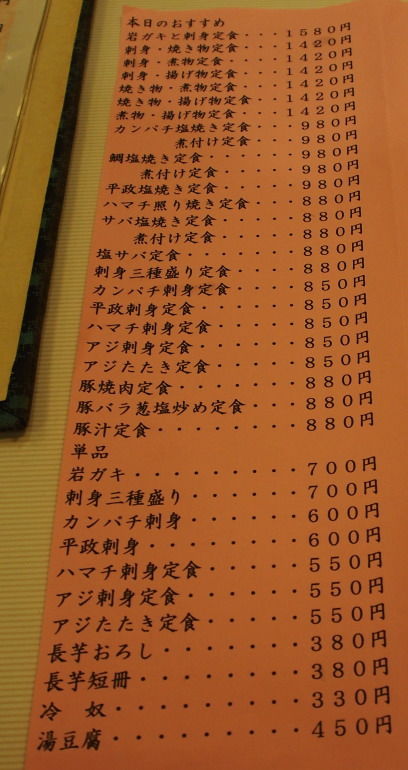 本日のおすすめ
岩ガキと刺身定食・・・１５８０円
刺身・焼き物定食・・・１４２０円
刺身・煮物定食・・・・１４２０円
刺身・揚げ物定食・・・１４２０円
焼き物・煮物定食・・・１４２０円
焼き物・揚げ物定食・・１４２０円
煮物・揚げ物定食・・・１４２０円
カンパチ塩焼き定食・・・・９８０円
煮付け定食・・・・９８０円
鯛塩焼き定食・・・・・・９８０円
煮付け定食・・・・・・９８０円
平政塩焼き定食・・・・・９８０円
ハマチ照り焼き定食・・・８８０円
サバ塩焼き定食・・・・・８８０円
煮付け定食・・・・・８８０円
塩サバ定食・・・・・・・８８０円
刺身三種盛り定食・・・・８８０円
カンパチ刺身定食・・・・８５０円
平政刺身定食・・・・・・８５０円
ハマチ刺身定食・・・・・８５０円
アジ刺身定食・・・・・・８５０円
アジたたき定食・・・・・８５０円
豚焼肉定食・・・・・・・８８０円
豚バラ葱塩炒め定食・・・８８０円
豚汁定食・・・・・・・・８８０円
単品
岩ガキ・・・・・・・・・７００円
刺身三種盛り・・・・・・７００円
カンパチ刺身・・・・・・６００円
平政刺身・・・・・・・・６００円
ハマチ刺身定食・・・・・５５０円
アジ刺身定食・・・・・・５５０円
アジたたき定食・・・・・５５０円
長芋おろし・・・・・・・３８０円
長芋短冊・・・・・・・・３８０円
冷　奴・・・・・・・・・３３０円
湯豆腐・・・・・・・・・４５０円